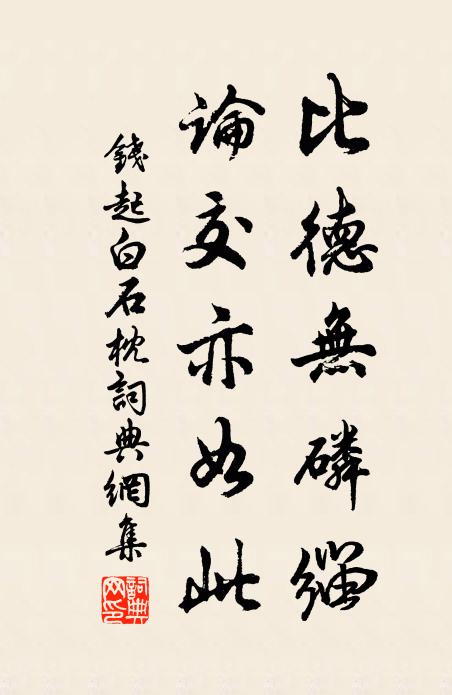 比德無磷緇
論交亦如此
錢起白石枕詞典網集
詞典網印